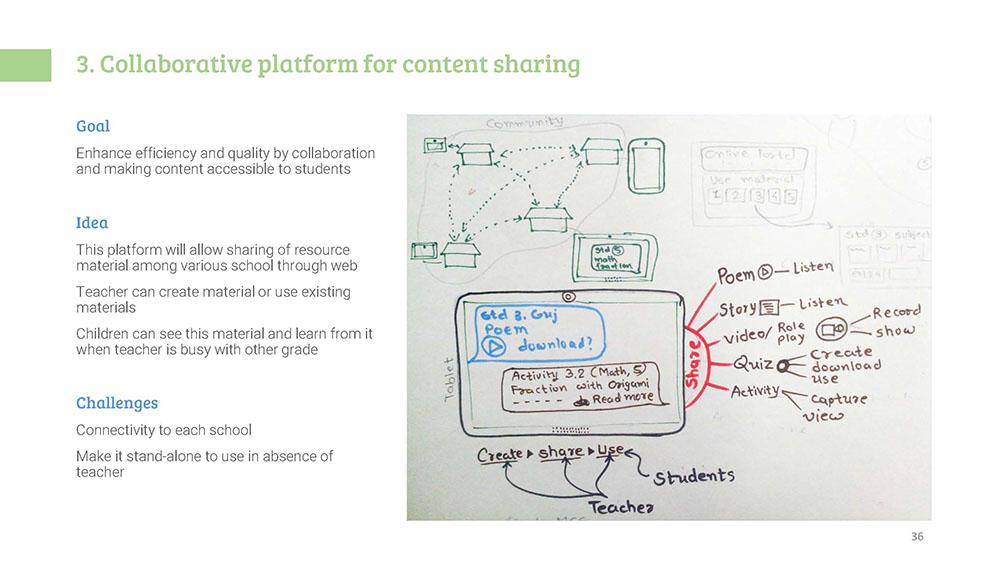 3. Collaborative platform for content sharing
Goal
Enhance efficiency and quality by collaboration
and making content accessible to students
Idea
This platform will allow sharing of resource
material among various school through web
Teacher can create material or use existing
materials
Children can see this material and learn from it
when teacher is busy with other grade
Challenges
Connectivity to each school
Make it stand-alone to use in absence of
teacher
Community
use material
1 2 3 4 5
std 3 subject
std 5
math
fraction
Tablet
std 3. Guj
Poem
download?
Activity 3.2 (Math, 5)
Fraction with Origami
- - - - - Read more
Share
Poem Listen
Story Listen
video/ Role play Record
show
Quiz Create
download
use
Activity capture
view
Create share Use
Students
Teacher
36